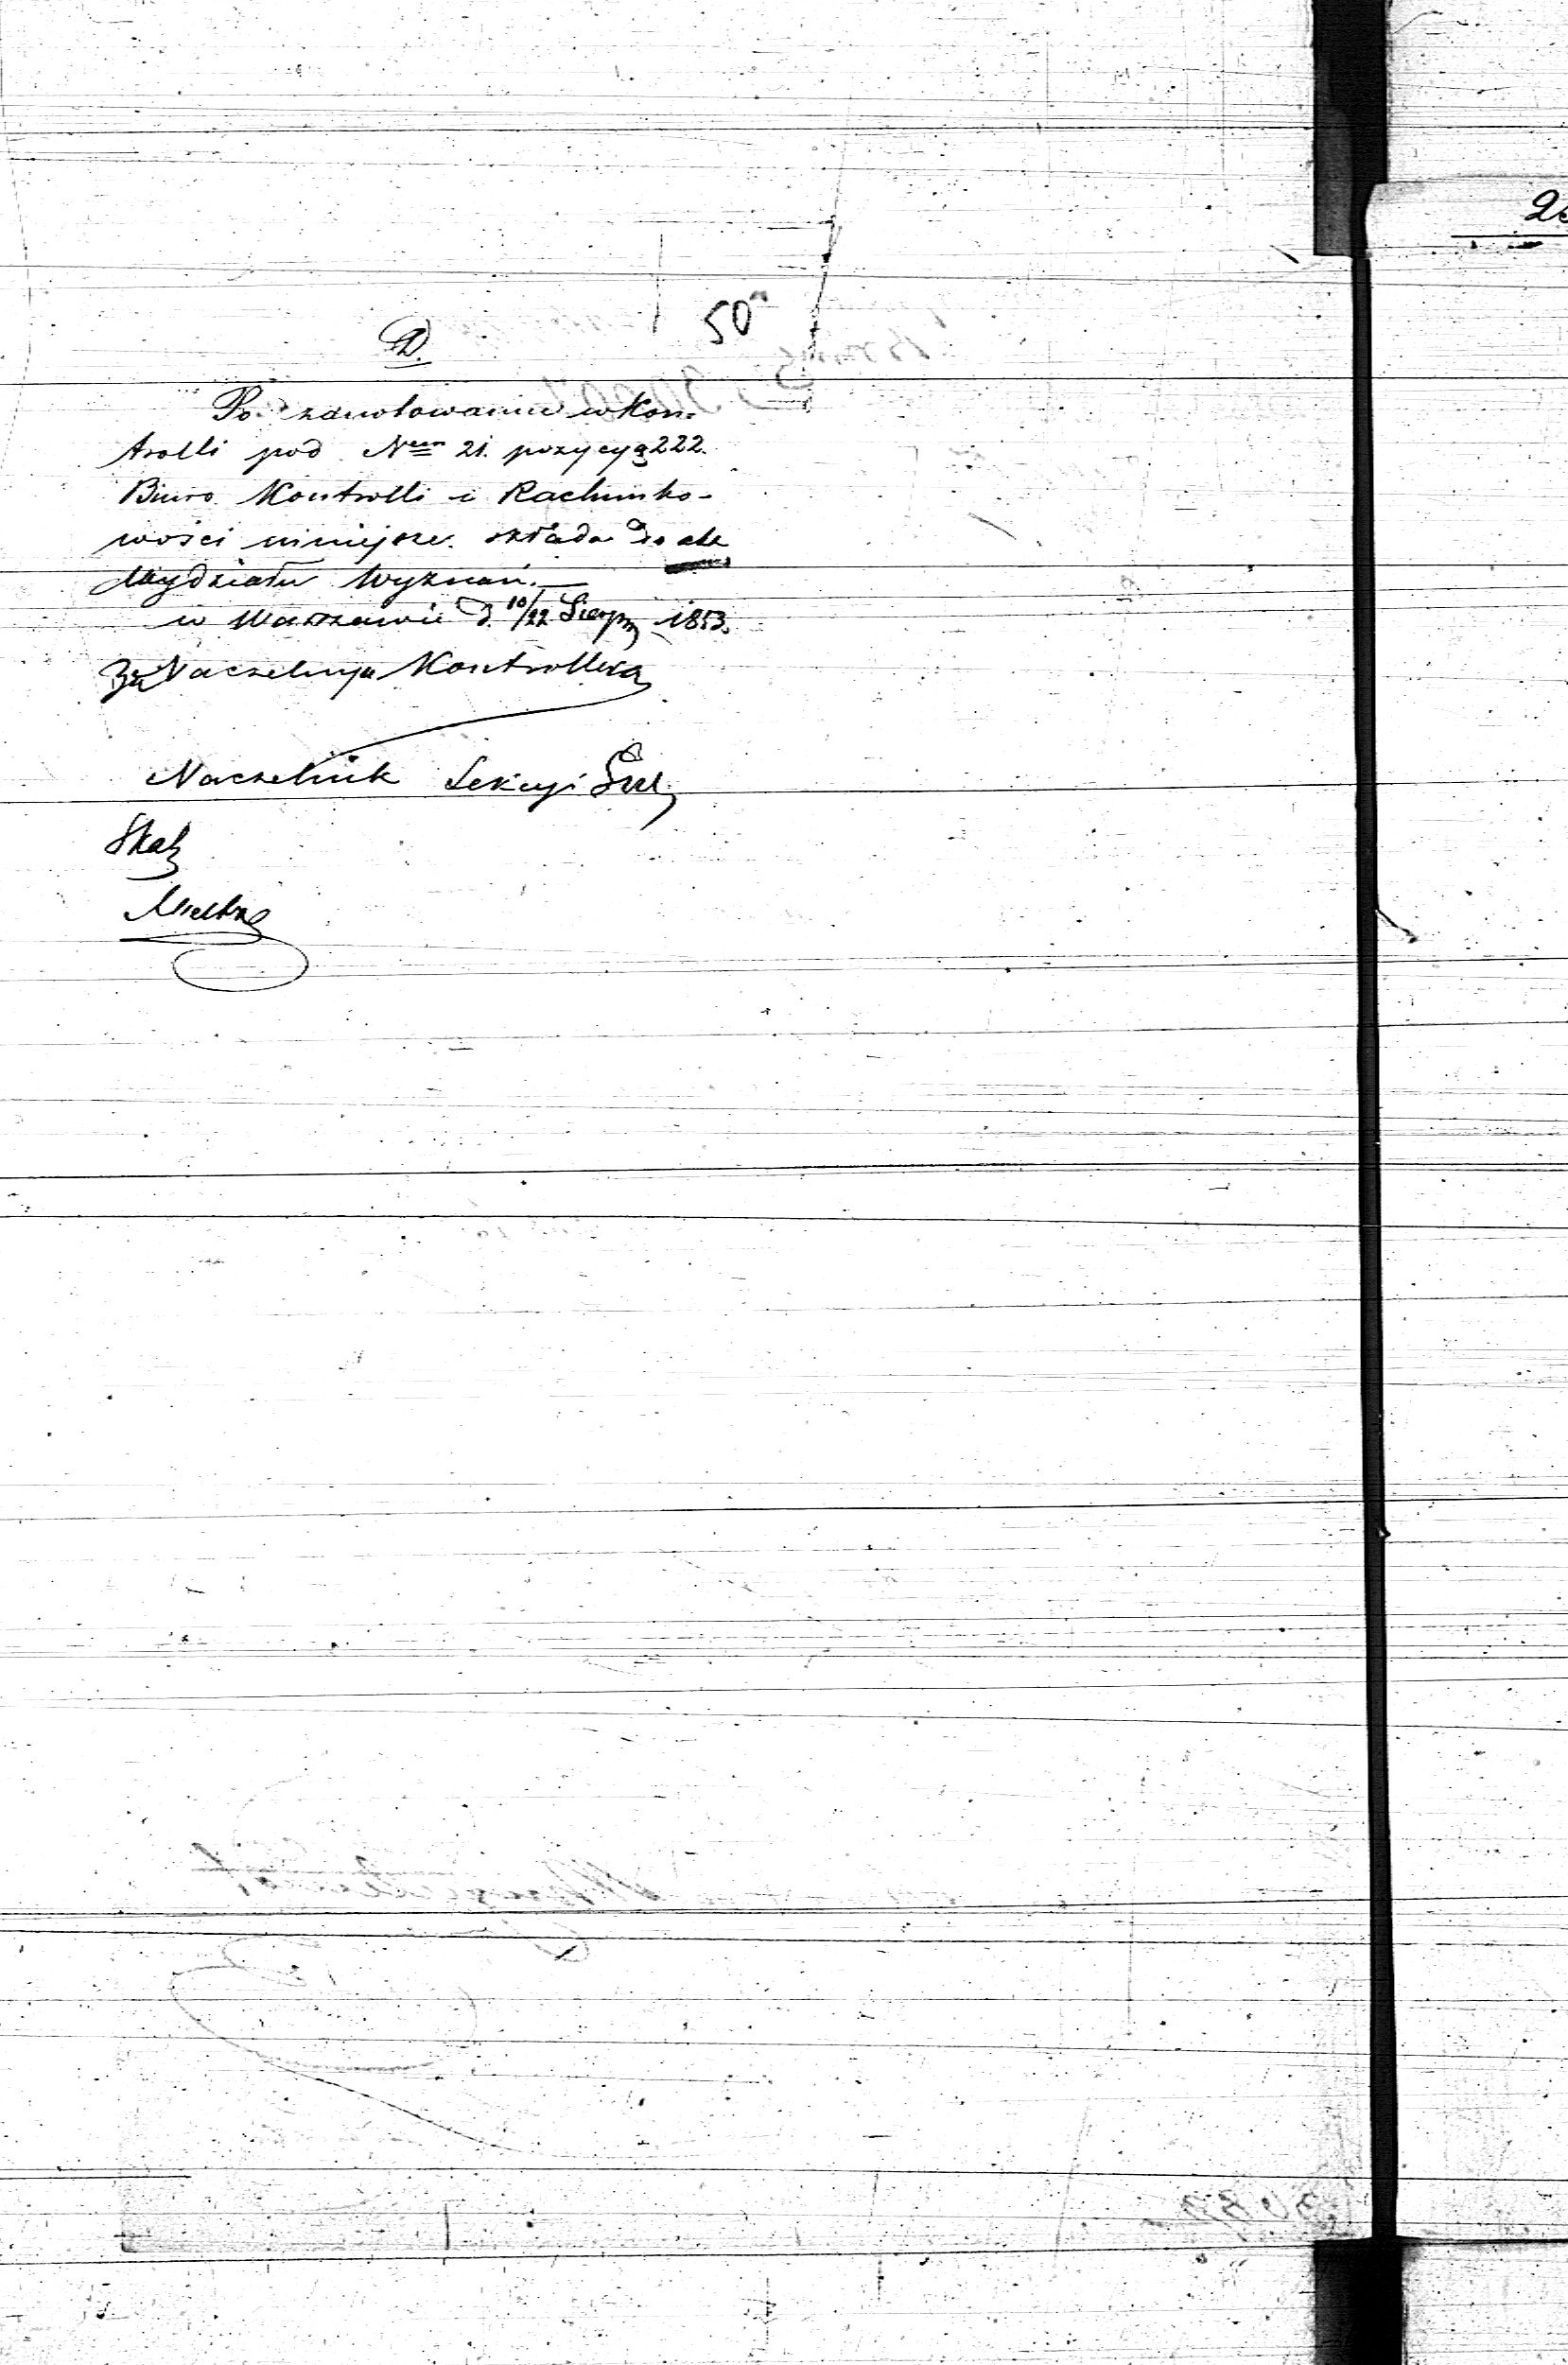 50
D.
Po zanotowaniu w Kon-
trolli pod Nem 21. pozycyą 222.
Biuro Kontrolli i Rachunko-
wości niniejsze składa do akt
Wydziału Wyznań.
w Warszawie d. 10/22 Sierpn 1853.
Za Naczelnego Kontrollera
Naczelnik Sekcyi